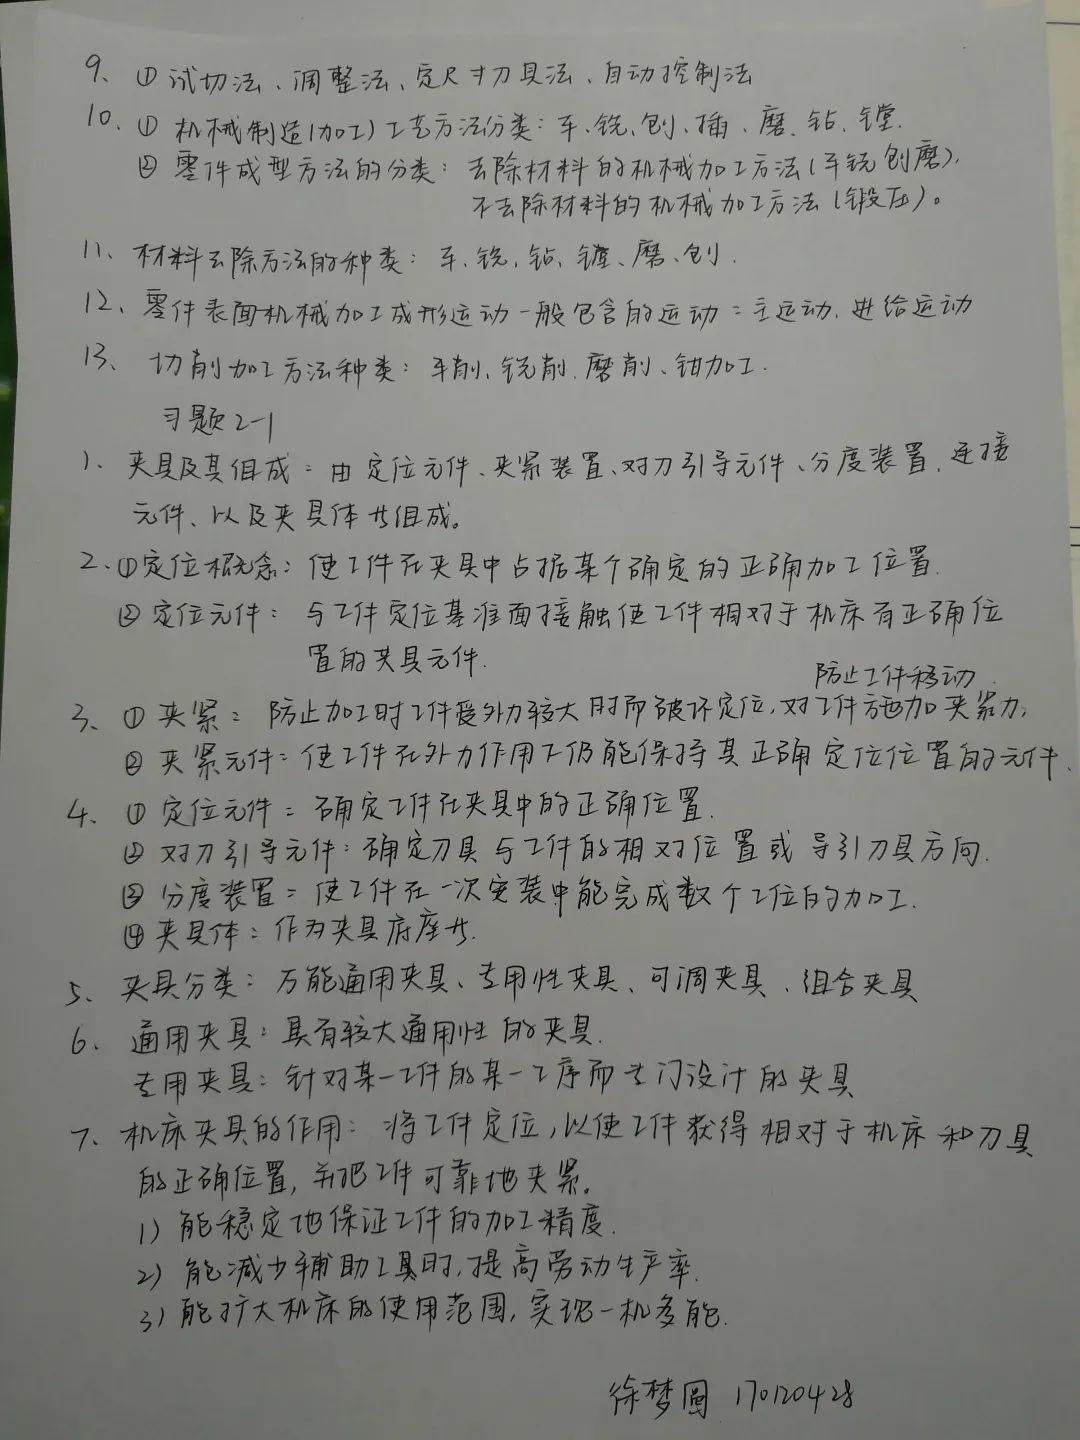 9、① 试切法、调整法、定尺寸刀具法、自动控制法
10、① 机械制造(加工)工艺方法分类：车、铣、刨、插、磨、钻、镗.
② 零件成型方法的分类：去除材料的机械加工方法(车铣刨磨),
不去除材料的机械加工方法(锻压)。
11、材料去除方法的种类：车、铣、钻、镗、磨、刨.
12、零件表面机械加工成形运动一般包含的运动：主运动、进给运动
13、切削加工方法种类：车削、铣削、磨削、钳加工.
习题2-1
1、夹具及其组成：由定位元件、夹紧装置、对刀引导元件、分度装置、连接
元件、以及夹具体共组成。
2、①定位概念：使工件在夹具中占据某个确定的正确加工位置.
② 定位元件：与工件定位基准面接触使工件相对于机床有正确位
置的夹具元件.
防止工件移动.
3、① 夹紧：防止加工时工件受外力较大时而破坏定位,对工件施加夹紧力,
② 夹紧元件：使工件在外力作用下仍能保持其正确定位位置的元件.
4、① 定位元件：确定工件在夹具中的正确位置.
② 对刀引导元件：确定刀具与工件的相对位置或导引刀具方向.
③ 分度装置：使工件在一次安装中能完成数个工位的加工.
④ 夹具体：作为夹具底座共.
5、夹具分类：万能通用夹具、专用性夹具、可调夹具、组合夹具
6、通用夹具：具有较大通用性的夹具.
专用夹具：针对某一工件的某一工序而专门设计的夹具
7、机床夹具的作用：将工件定位,以使工件获得相对于机床和刀具
的正确位置,并把工件可靠地夹紧。
1) 能稳定地保证工件的加工精度.
2) 能减少辅助工具时,提高劳动生产率.
3) 能扩大机床的使用范围,实现一机多能.
徐梦圆 170120428